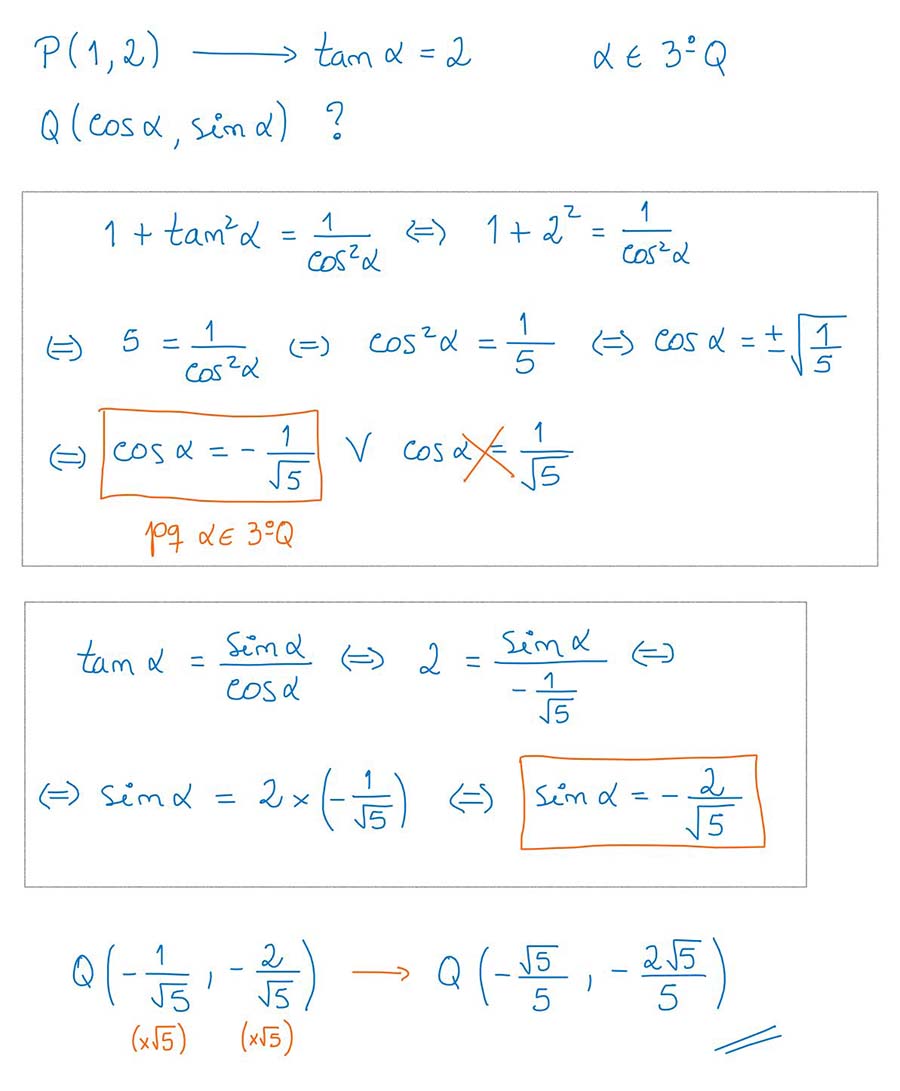 P(1,2) ⟶ tan α = 2 α ∈ 3ºQ
Q(cos α, sin α) ?
1 + tan²α = 1/cos²α ⇔ 1 + 2² = 1/cos²α
⇔ 5 = 1/cos²α ⇔ cos²α = 1/5 ⇔ cos α = ±√(1/5)
⇔ cos α = -1/√5 ∨ cos α = 1/√5
pq α ∈ 3ºQ
tan α = sin α/cos α ⇔ 2 = sin α/(-1/√5) ⇔
⇔ sin α = 2 × (-1/√5) ⇔ sin α = -2/√5
Q(-1/√5, -2/√5) ⟶ Q(-√5/5, -2√5/5)
(×√5) (×√5)